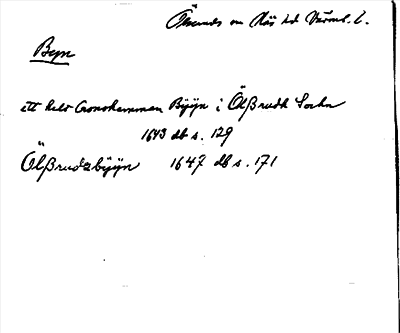 Ölseruds sn Näs hd Värml. l.
Byn
ett helt Cronohemman Bÿÿn i Ölßrudh Sochn
1643 db s. 129
Ölßrudzbÿÿn 1647 db s. 171